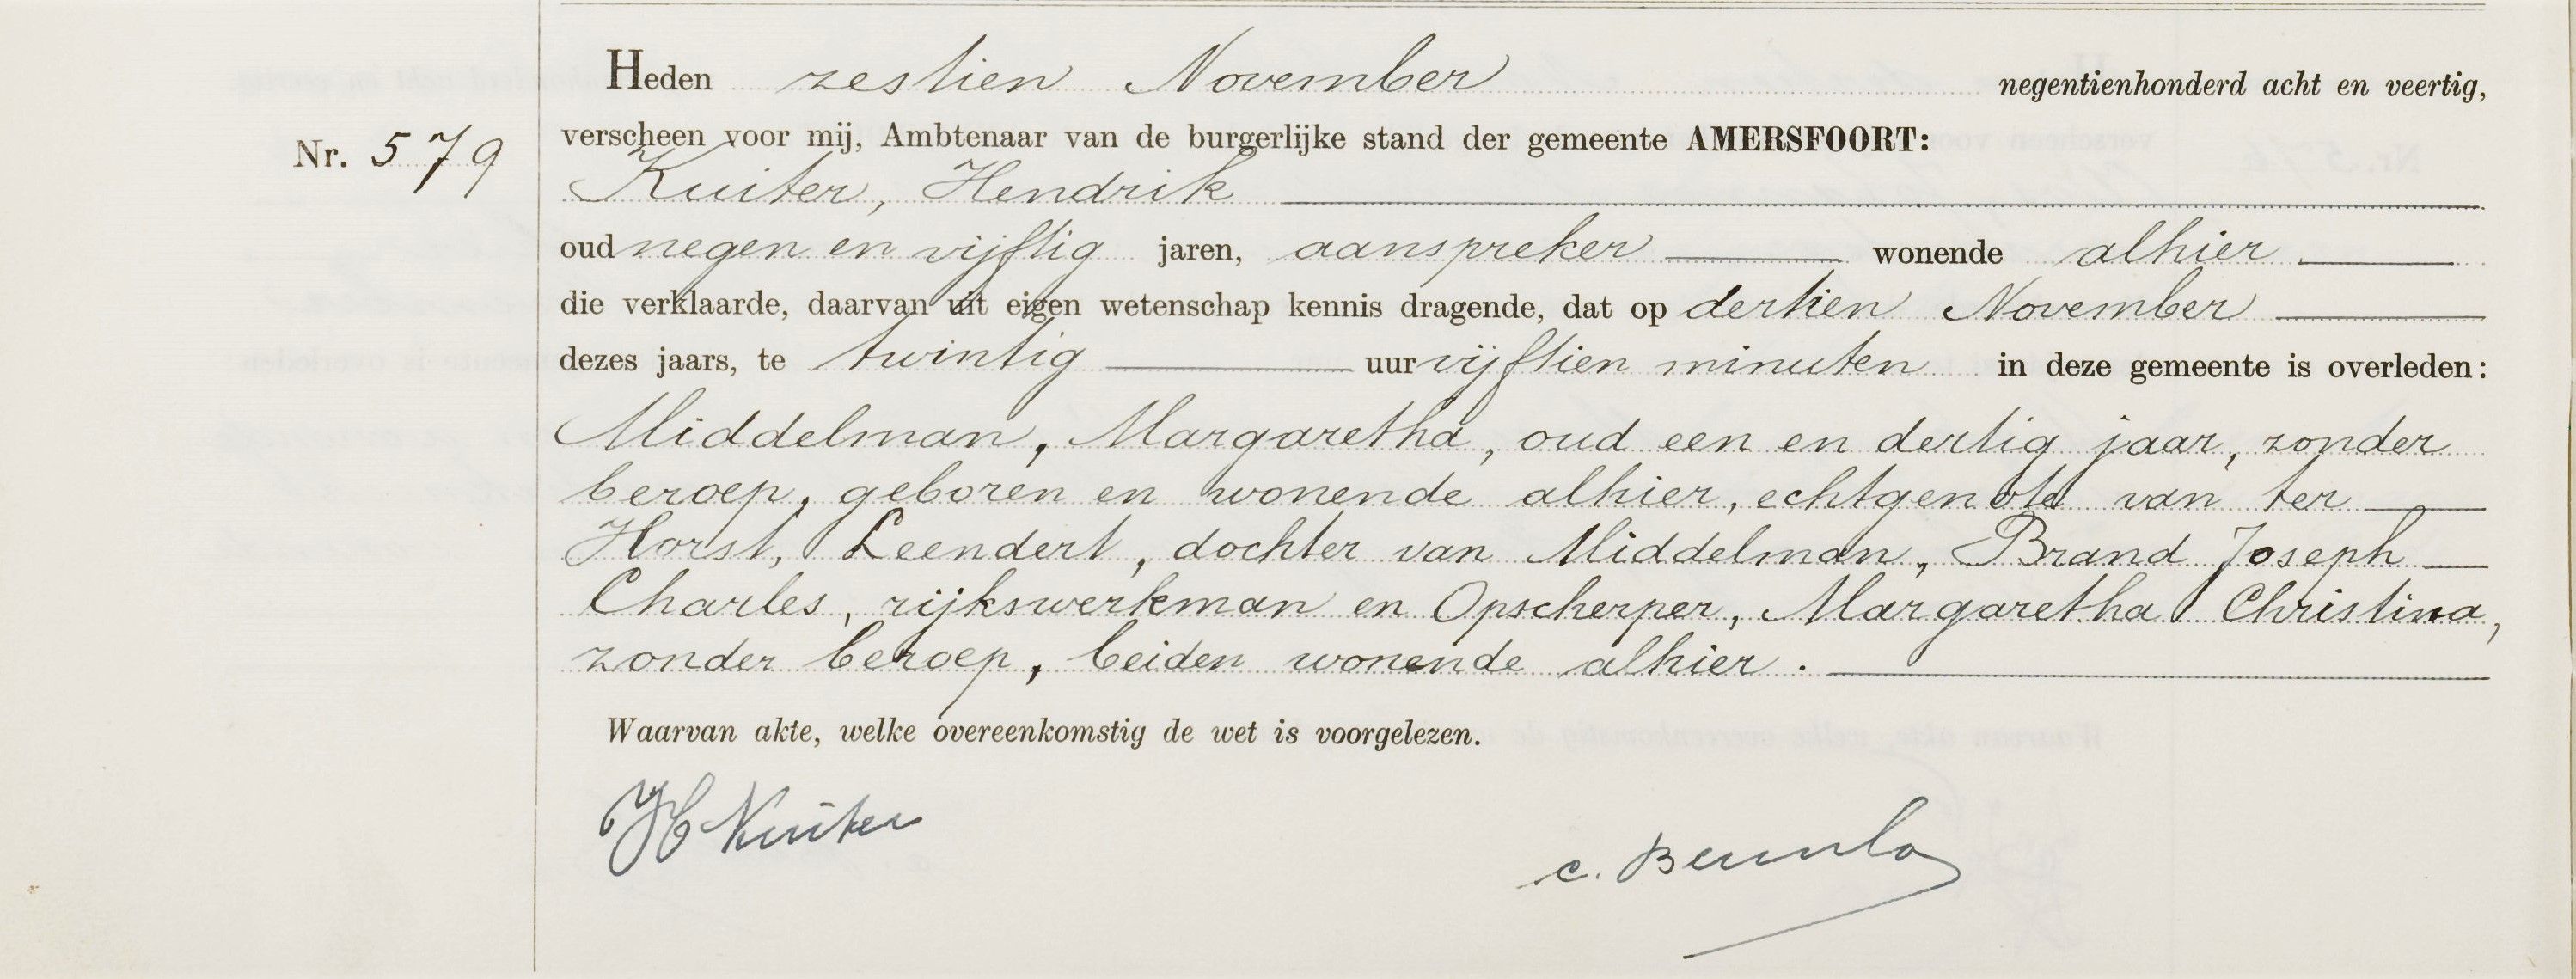 Heden zestien November negentienhonderd acht en veertig,
Nr. 579
verscheen voor mij, Ambtenaar van de burgerlijke stand der gemeente AMERSFOORT:
Kuiter, Hendrik
oud negen en vijftig jaren, aanspreker wonende alhier
die verklaarde, daarvan uit eigen wetenschap kennis dragende, dat op dertien November
dezes jaars, te twintig uur vijftien minuten in deze gemeente is overleden:
Middelman, Margaretha, oud een en dertig jaar, zonder
beroep, geboren en wonende alhier, echtgenote van ter
Horst, Leendert, dochter van Middelman, Brand Joseph
Charles, rijkswerkman en Opscherper, Margaretha Christina,
zonder beroep, beiden wonende alhier.
Waarvan akte, welke overeenkomstig de wet is voorgelezen.
H Kuiter
c.